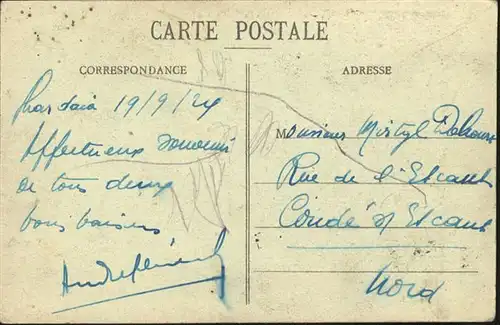 CARTE POSTALE
CORRESPONDANCE
ADRESSE
Ghardaia 19/9/24
Affectueux souvenir
de tous deux
bons baisers
Monsieur Mirtyl
Rue de l'Escaut
Condé s/ Escaut
Nord